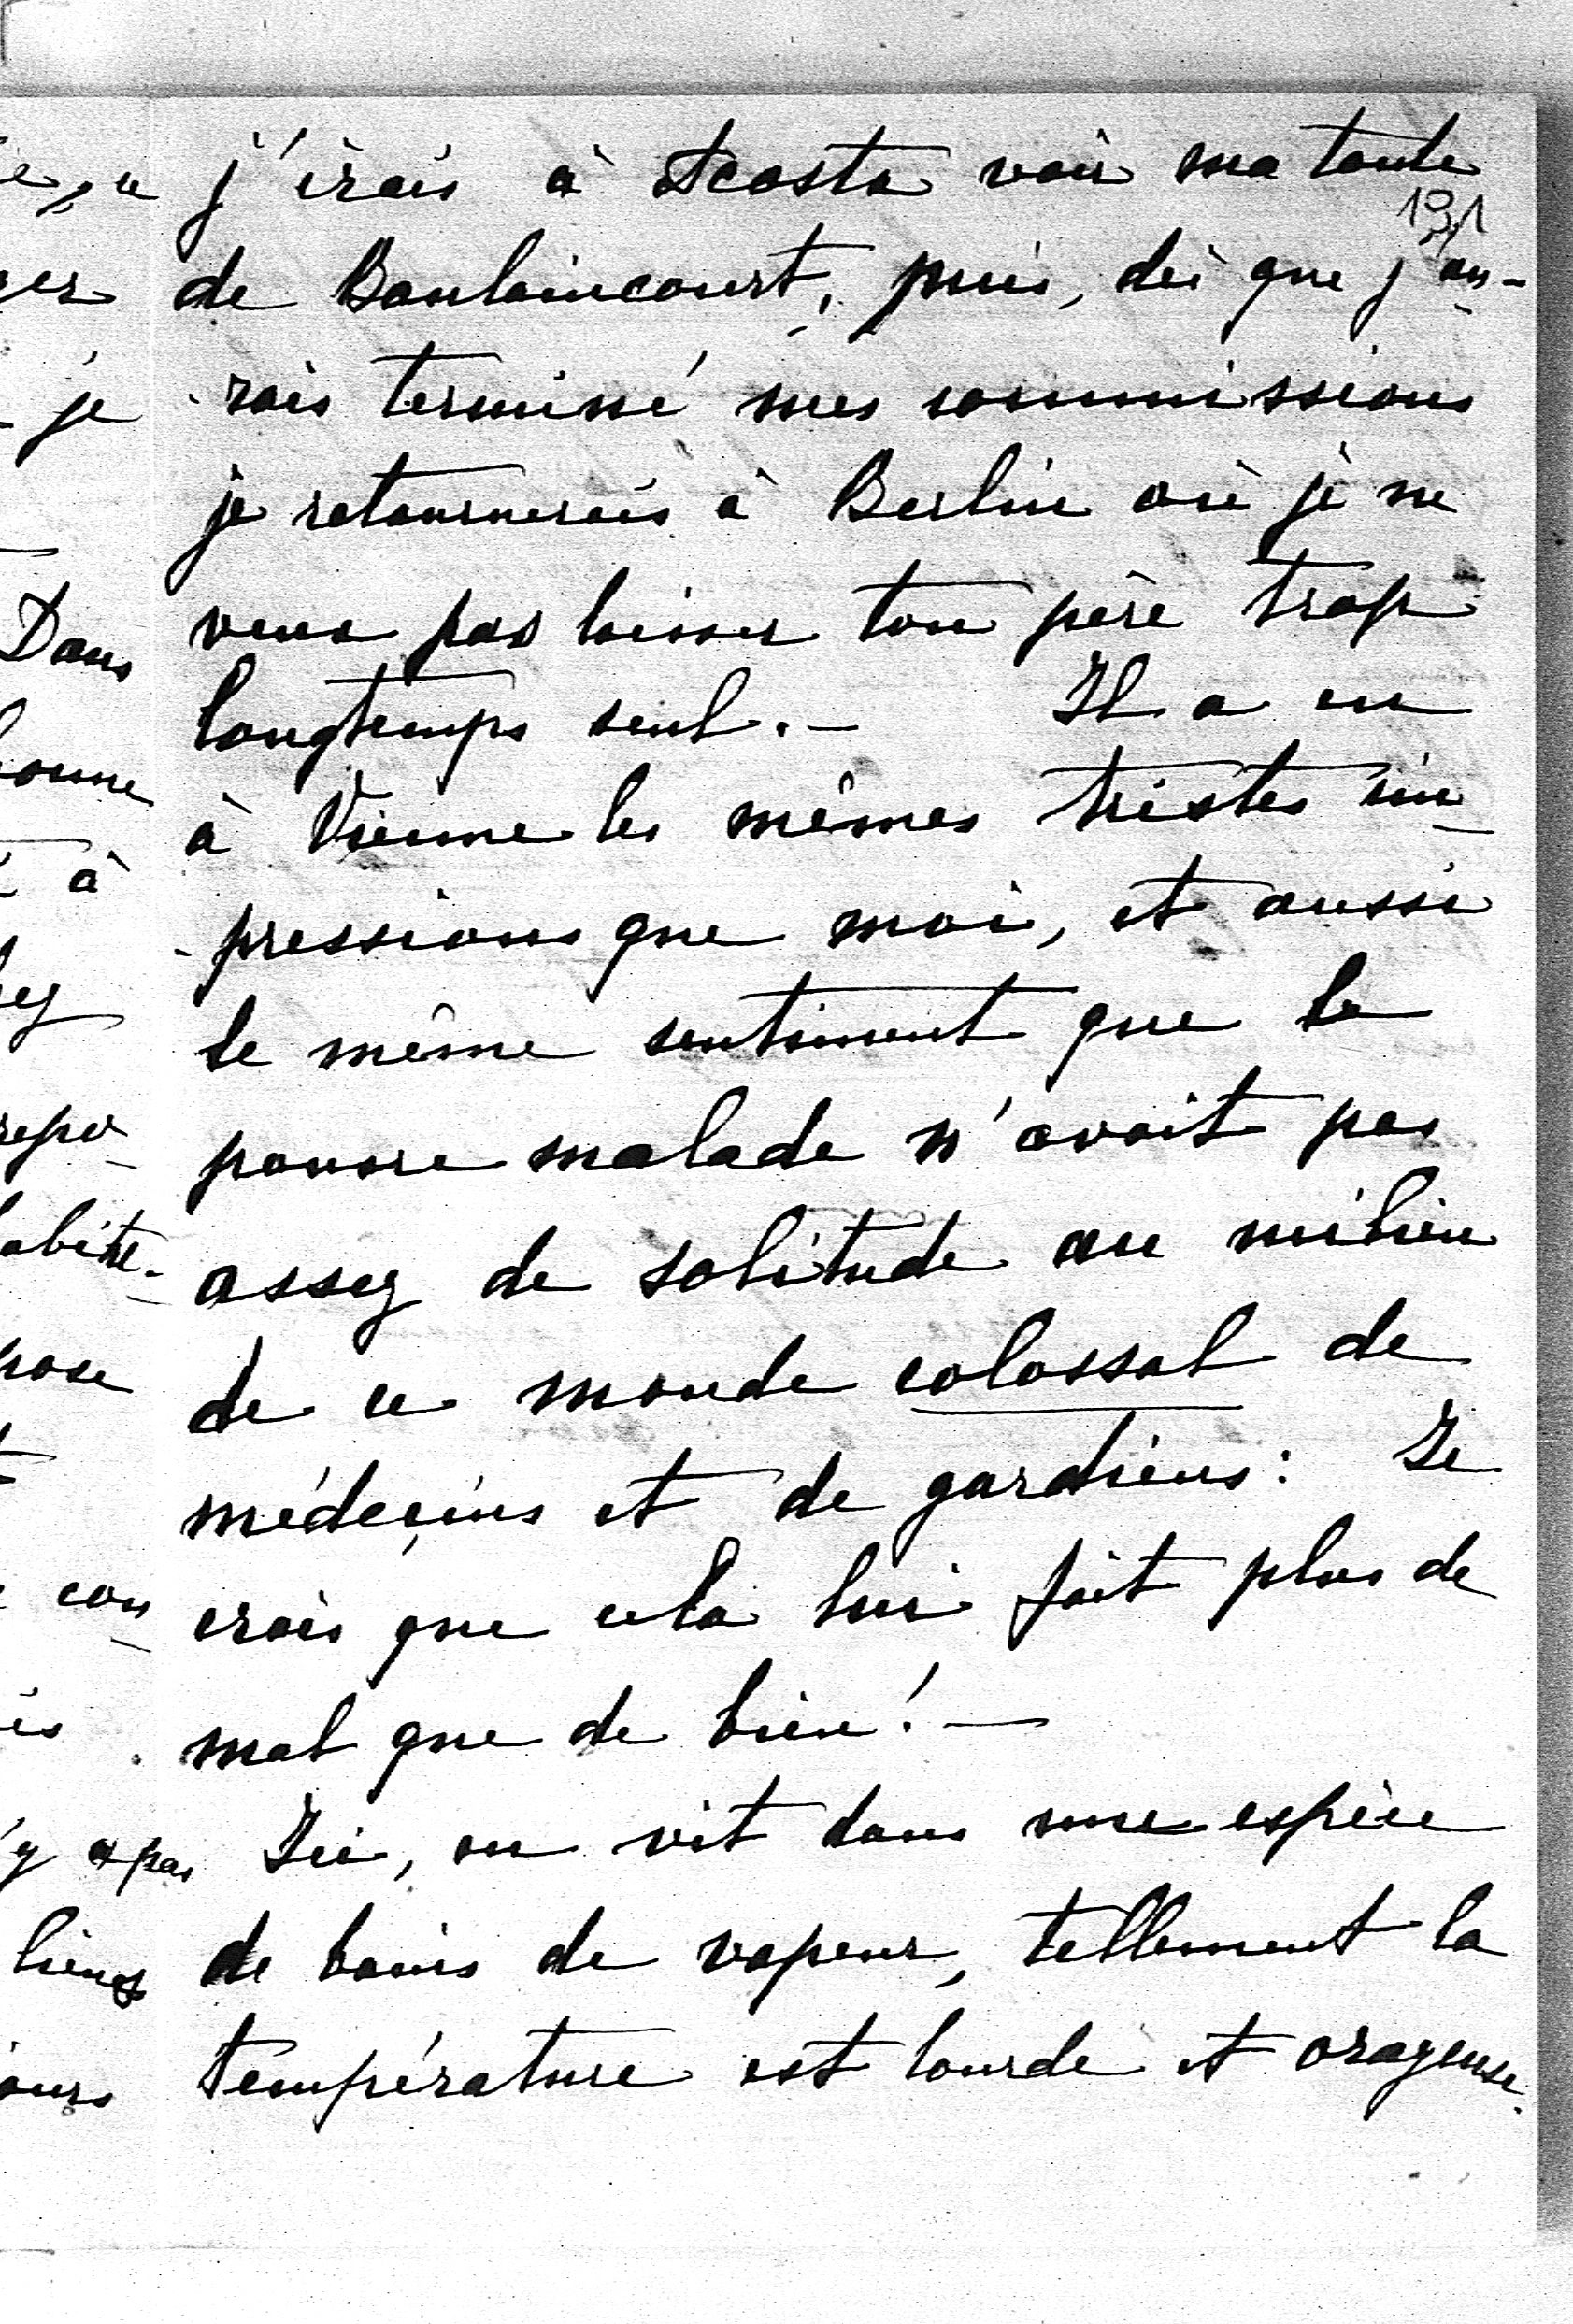 j'irais à Acosta voir ma tante
191
de Baulaincourt, puis, dès que j'au-
rais terminé mes commissions
je retournerais à Berlin où je ne
veux pas laisser ton père trop
longtemps seul. — Il a eu
à Vienne les mêmes tristes im-
-pressions que moi, et aussi
le même sentiment que le
pauvre malade n'avait pas
assez de solitude au milieu
de ce monde colossal de
médecins et de gardiens: Je
crois que cela lui fait plus de
mal que de bien! —
Ici, on vit dans une espèce
de bains de vapeur, tellement la
température est lourde et orageuse.
je
Dans
à
con
y a pas